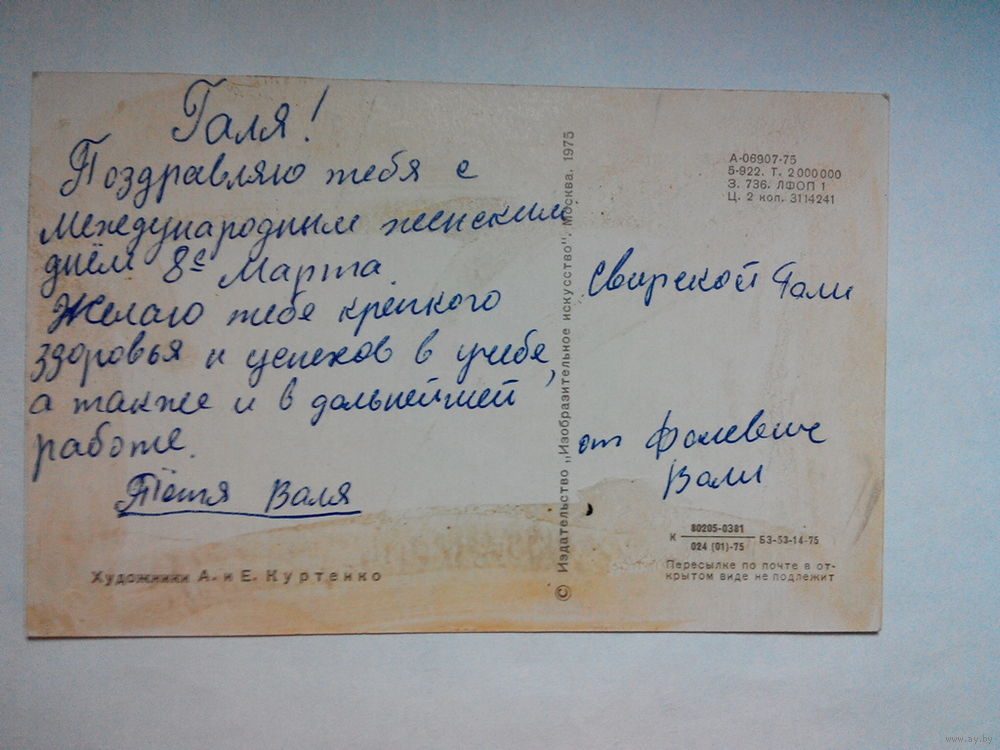 Галя!
Поздравляю тебя с
международным женским
днём 8ᵉ Марта.
Желаю тебе крепкого
здоровья и успехов в учебе,
а также и в дальнейшей
работе.
Тётя Валя
Художники А. и Е. Куртенко
© Издательство „Изобразительное искусство". Москва. 1975
А-06907-75
5-922. Т. 2 000 000
З. 736. ЛФОП 1
Ц. 2 коп. 3114241
Свирской Гали
от Фалевич
Вали
К 80205-0381
024 (01)-75 БЗ-53-14-75
Пересылке по почте в от-
крытом виде не подлежит
www.ay.by